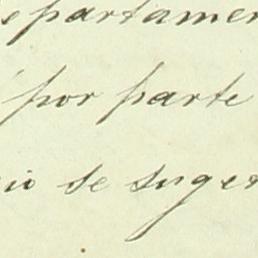 epartamen
por parte
io se suger